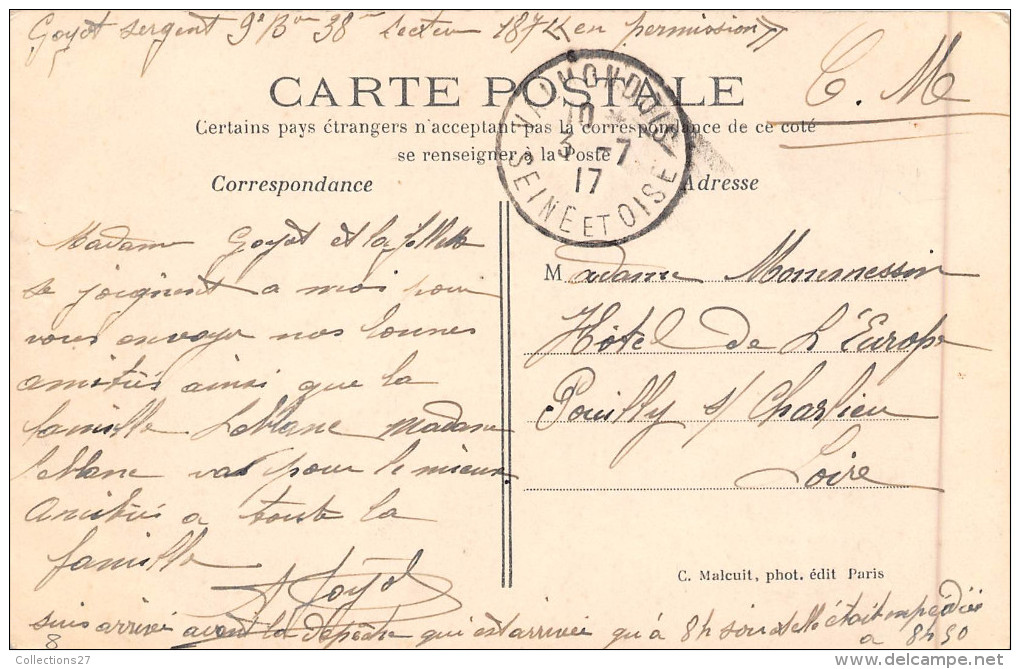 Goyot sergent 9e Bon 38 secteur 187 « en permission »
C. M
CARTE POSTALE
Certains pays étrangers n'acceptant pas la correspondance de ce coté
se renseigner à la Poste
VALMONDOIS
10
3 -7
17
SEINE ET OISE
Correspondance
Adresse
Madame Goyot et la fillette
se joignent a moi pour
vous envoyer nos bonnes
amitiés ainsi que la
famille Leblanc Madame
leblanc vas pour le mieux
Amitiés a toute la
famille
Goyot
Madame Mommessin
Hôtel de L'Europe
Pouilly s/ Charlieu
Loire
C. Malcuit, phot. édit Paris
suis arrivé avant la depeche qui est arrivée qu'à 8h soir elle était expediée
a 8h50
8
Collections27
delcampe.net